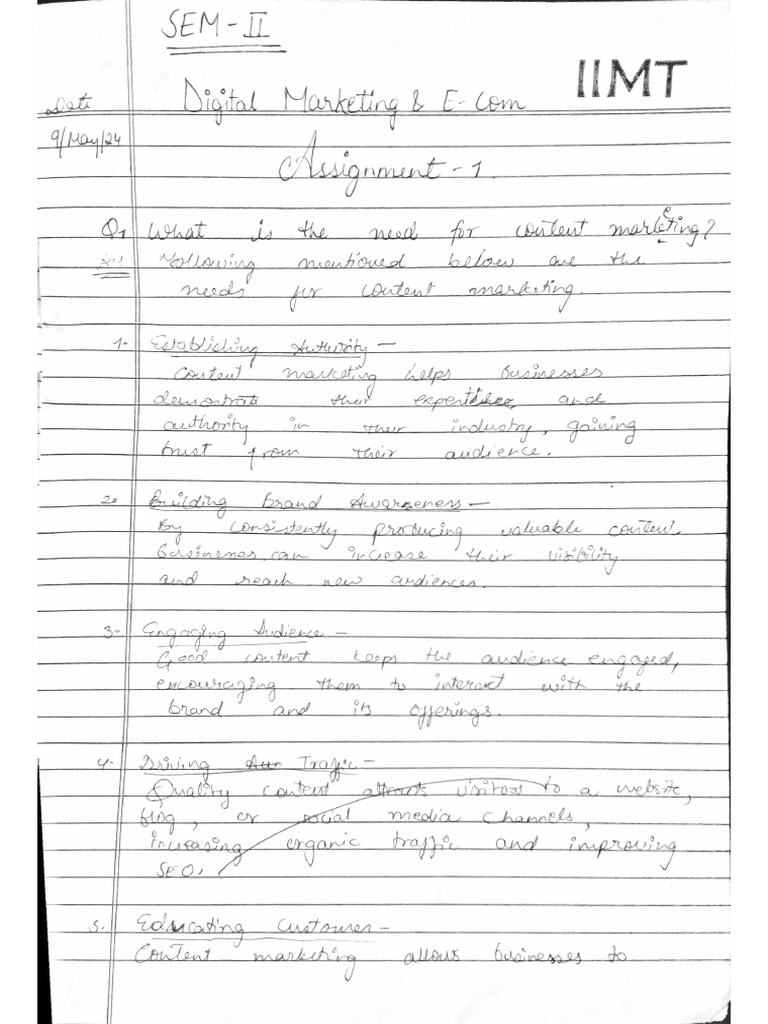 SEM - II
IIMT
Digital Marketing & E-Com
Date
9/May/24
Assignment - 1.
Q1 What is the need for content marketing?
Following mentioned below are the
needs for content marketing.
1. Establishing Authority -
Content marketing helps businesses
demostrate their expertise and
authority in their industry, gaining
trust from their audience.
2. Building brand Awareness -
By consistently producing valuable content
businesses can increase their visibility
and reach new audiences.
3. Engaging Audience -
Good content keeps the audience engaged,
encouraging them to interact with the
brand and its offerings.
4. Driving Traffic -
Quality content attracts visitors to a website,
blog, or social media channels,
increasing organic traffic and improving
SEO.
5. Educating Customer -
Content marketing allows businesses to